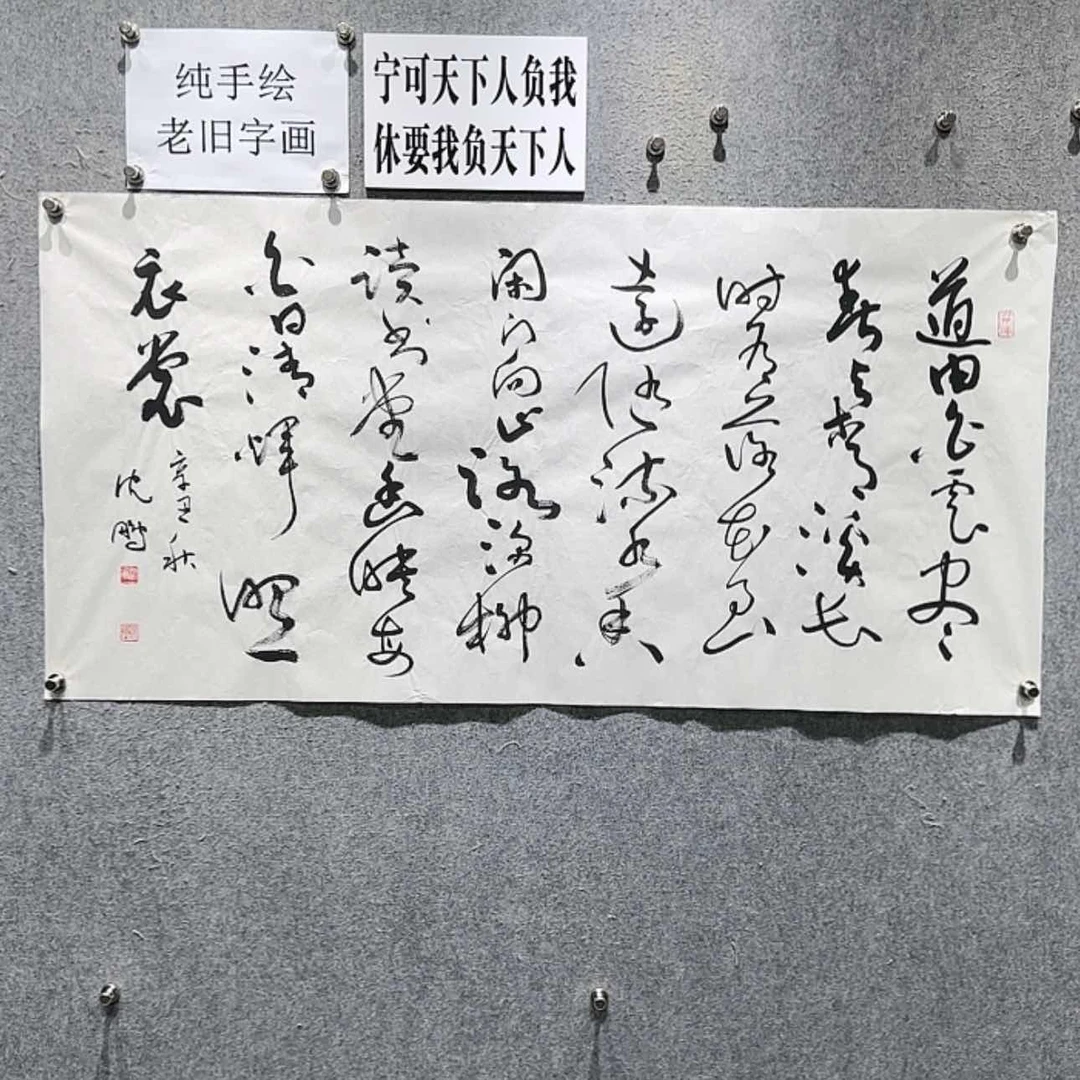 纯手绘
老旧字画
宁可天下人负我
休要我负天下人
道由白雲尽
春与青溪长
时有落花至
遠随流水香
闲门向山路深柳
读书堂幽映每
白日清辉照
衣裳
辛丑秋
沈鹏